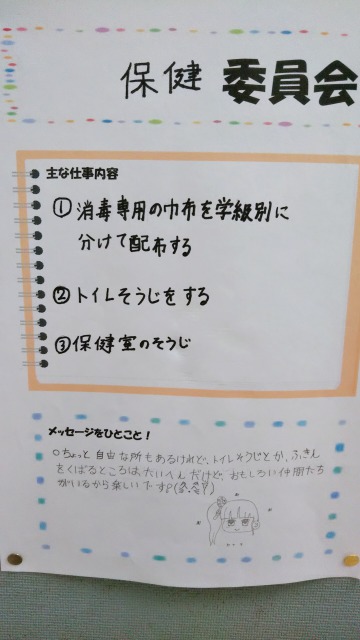 保健 委員会
主な仕事内容
①消毒専用の巾布を学級別に
分けて配布する
②トイレそうじをする
③保健室のそうじ
メッセージをひとこと！
○ちょっと自由な所もあるけれど、トイレそうじとか、ふきん
をくばるところは、たいへんだけど、おもしろい仲間たち
がいるから楽しいです